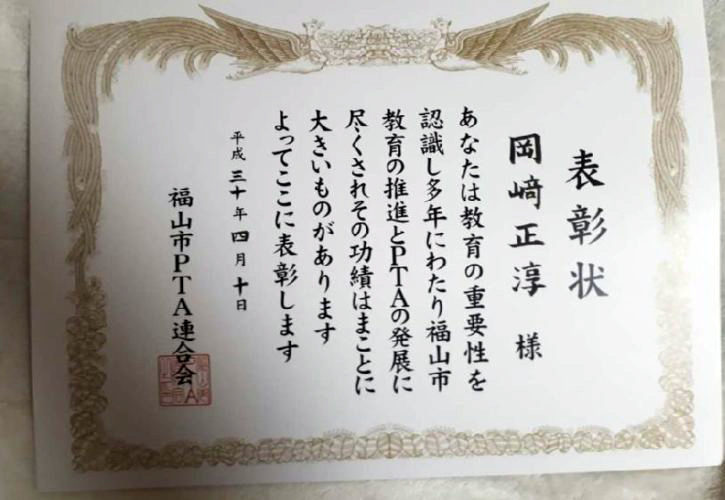 表彰状
岡﨑正淳 様
あなたは教育の重要性を
認識し多年にわたり福山市
教育の推進とPTAの発展に
尽くされその功績はまことに
大きいものがあります
よってここに表彰します
平成三十年四月十日
福山市PTA連合会